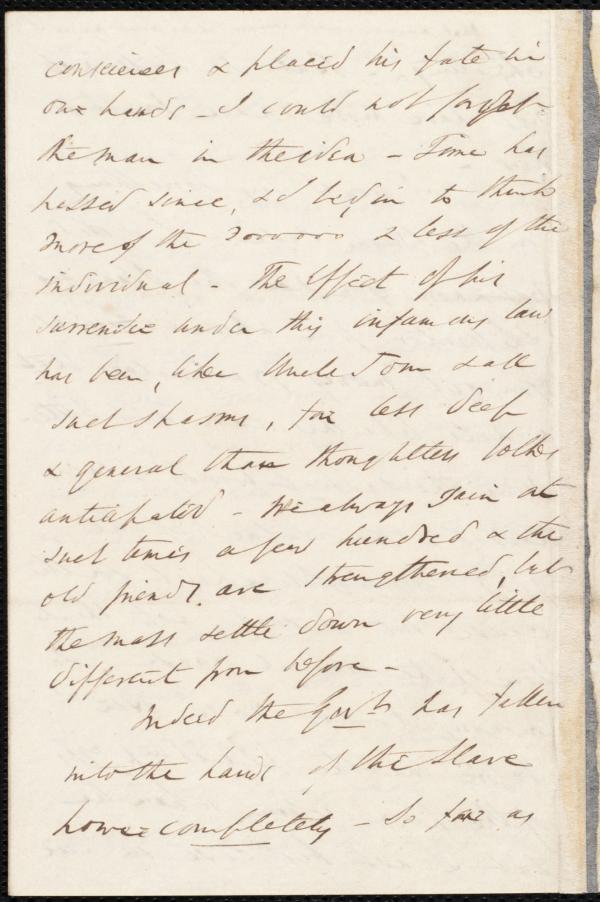 consciences & placed his fate in
our hands - I could not forget
the man in the idea - Time has
passed since, & I begin to think
more of the 3000000 & less of the
individual - The effect of his
surrender under this infamous law
has been, like Uncle Tom & all
such spasms, far less deep
& general than thoughtless folks
anticipated - We always gain at
such times a few hundred & the
old friends are strengthened, but
the mass settle down very little
different from before -
Indeed the Govt. has fallen
into the hands of the Slave
power completely - So far as